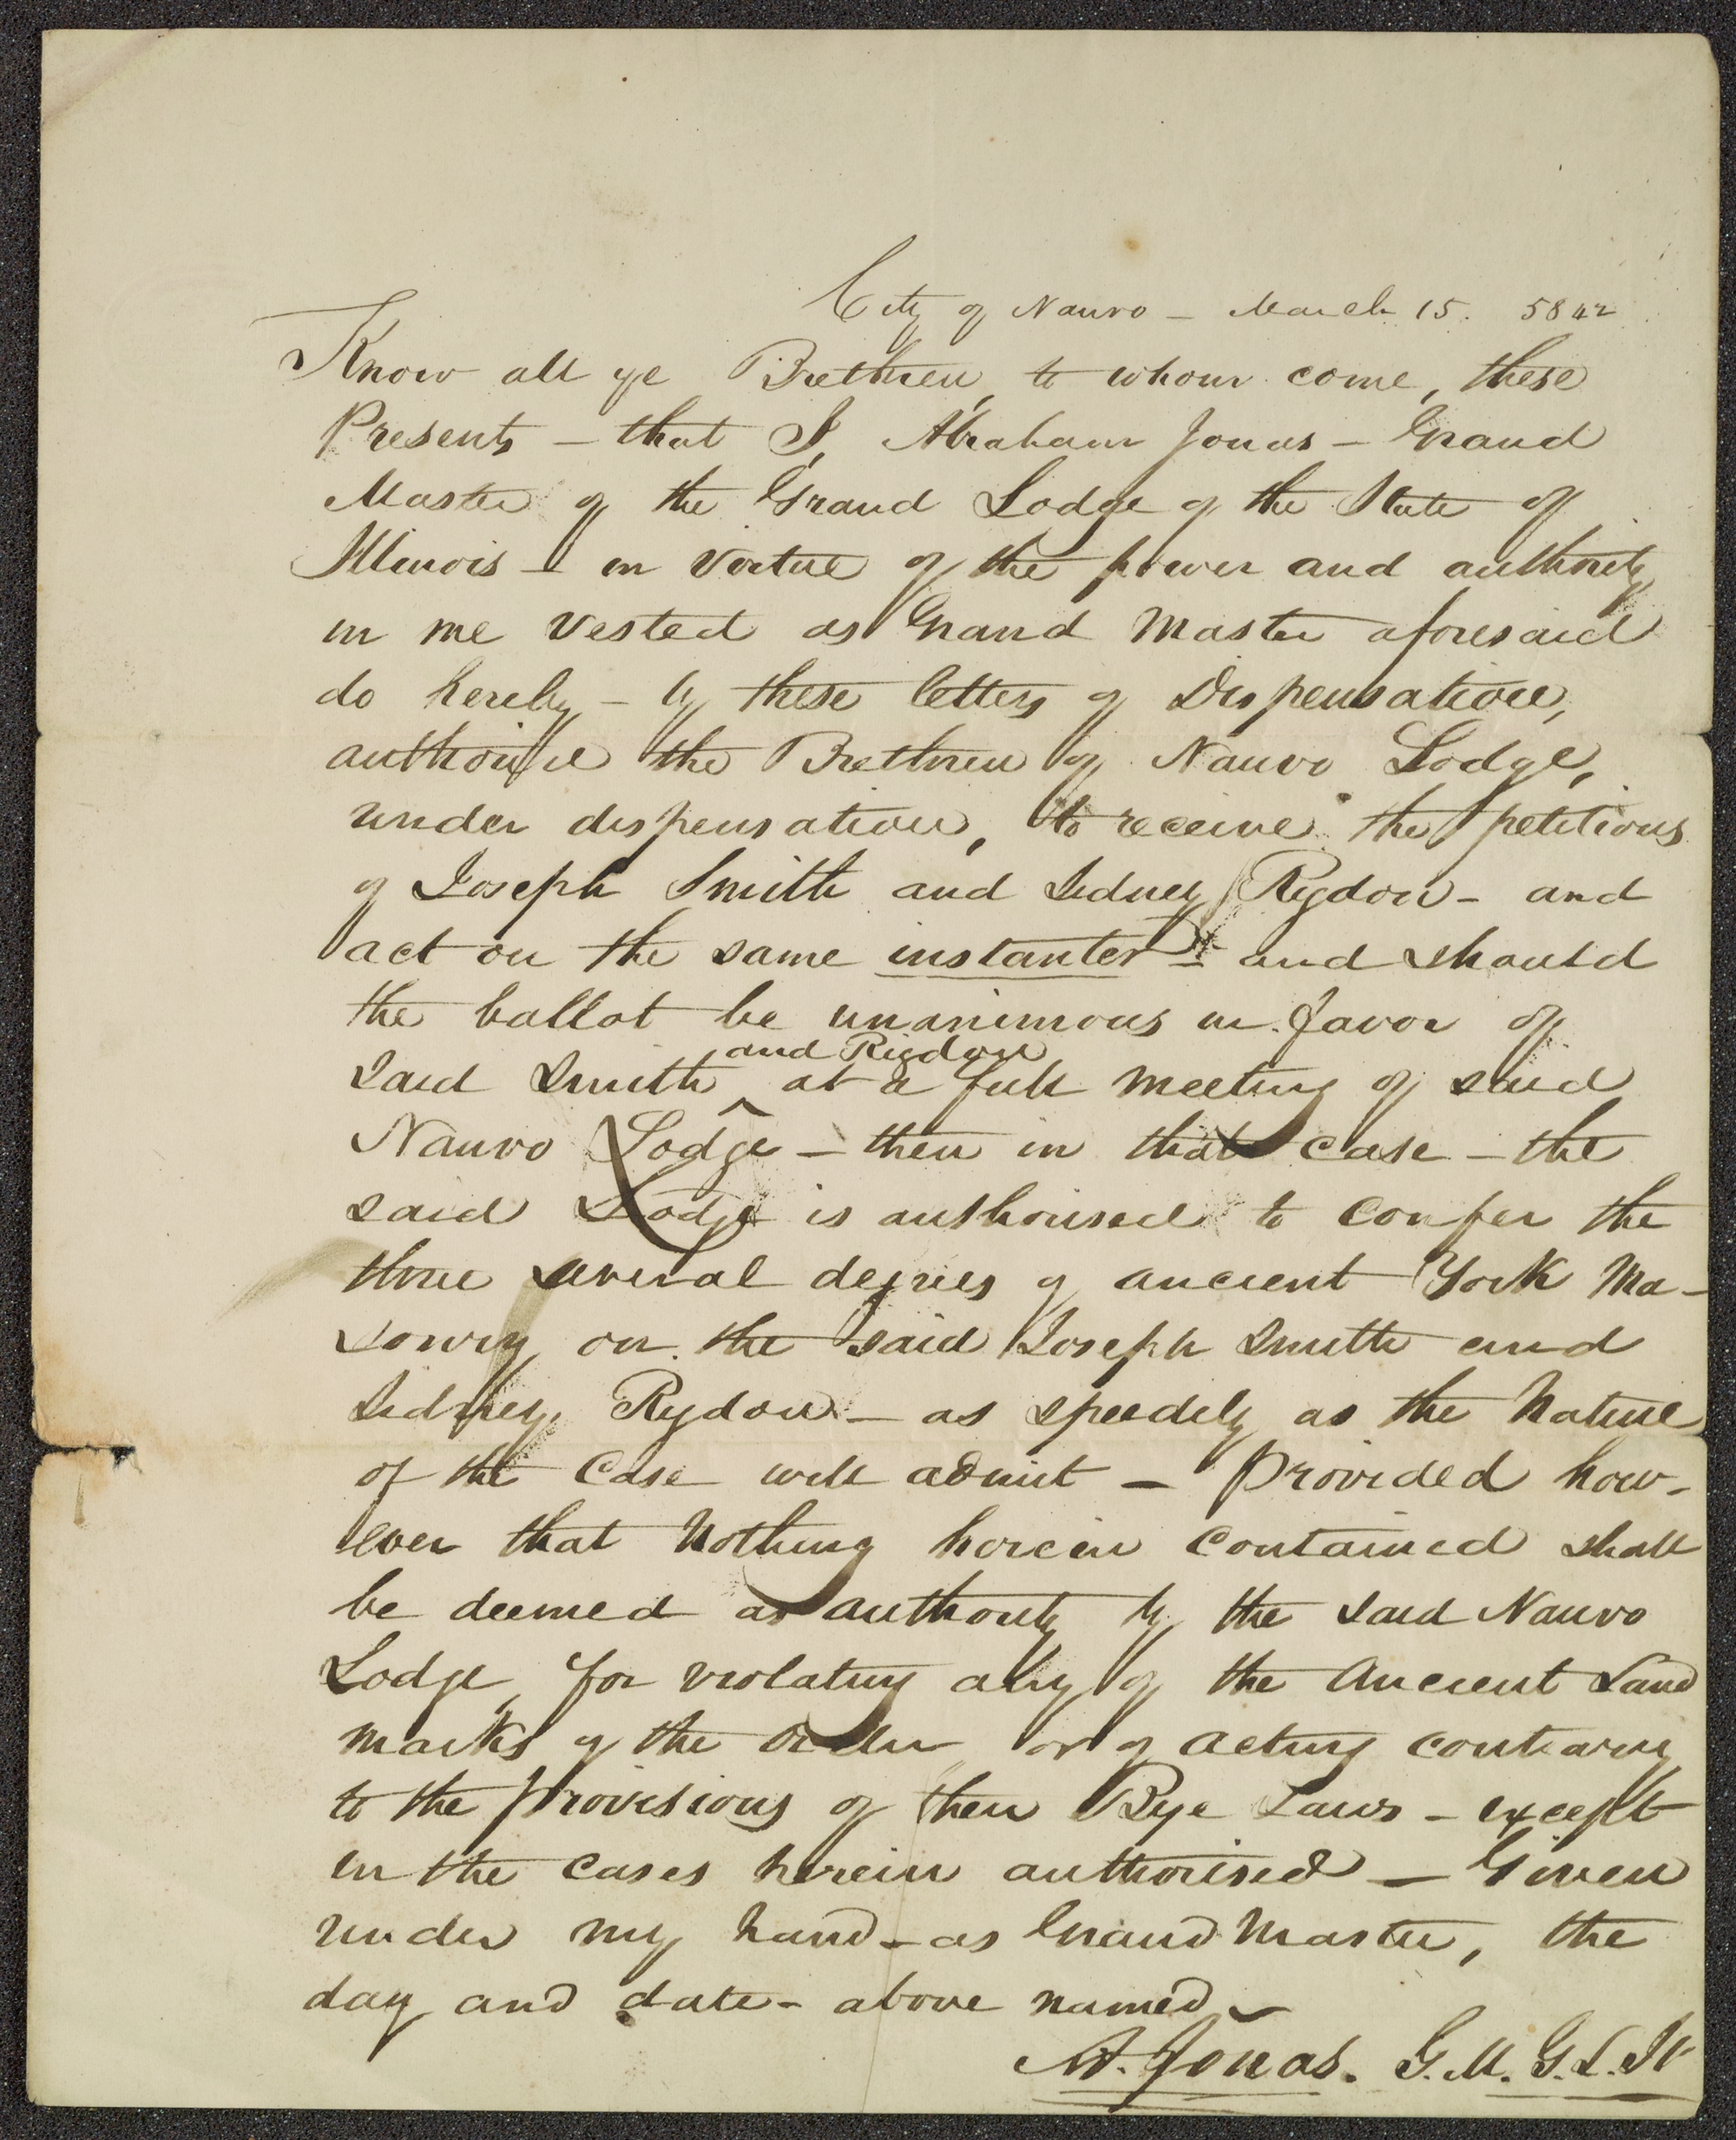 City of Nauvo – March 15. 5842
Know all ye Brethren, to whom come, these
Presents – that I, Abraham Jonas – Grand
Master of the Grand Lodge of the State of
Illinois – in virtue of the power and authority
in me vested as Grand Master aforesaid
do hereby – by these letters of Dispensation,
authorise the Brethren of Nauvo Lodge,
under dispensation, to receive the petitions
of Joseph Smith and Sidney Rigdon – and
act on the same instanter – and should
the ballot be unanimous in favor of
said Smith ^and Rigdon at a full meeting of said
Nauvo Lodge – then in that case – the
said Lodge is authorised to confer the
three several degrees of ancient York Ma-
sonry on the said Joseph Smith and
Sidney Rigdon – as speedily as the Nature
of the Case will admit – Provided how-
ever that Nothing herein contained shall
be deemed as authority by the said Nauvo
Lodge, for violating any of the Ancient Land
marks of the order or of acting contrary
to the provisions of their Bye Laws – except
in the cases herein authorised – Given
under my hand – as Grand Master, the
day and date – above named –
A. Jonas. G. M. G. L. Il